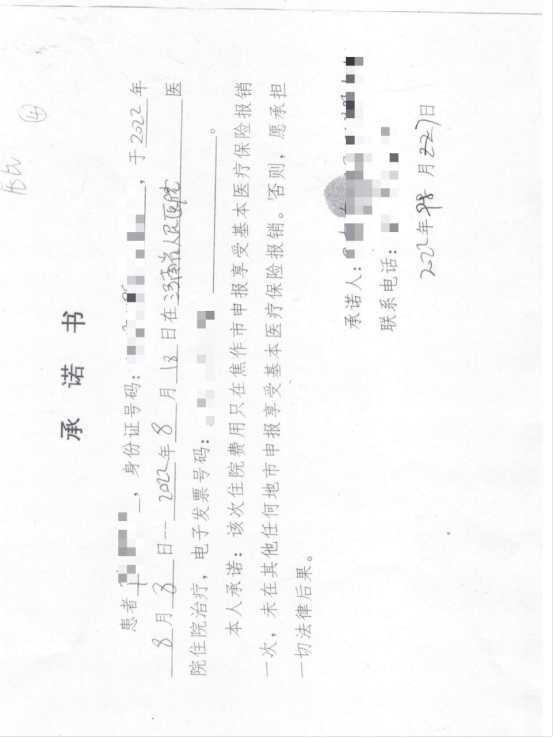 ④
承诺书
患者，身份证号码：，于2022年
8月8日—2022年8月18日在河南省人民医院医
院住院治疗，电子发票号码：。
本人承诺：该次住院费用只在焦作市申报享受基本医疗保险报销
一次，未在其他任何地市申报享受基本医疗保险报销。否则，愿承担
一切法律后果。
承诺人：
联系电话：
2022年月日